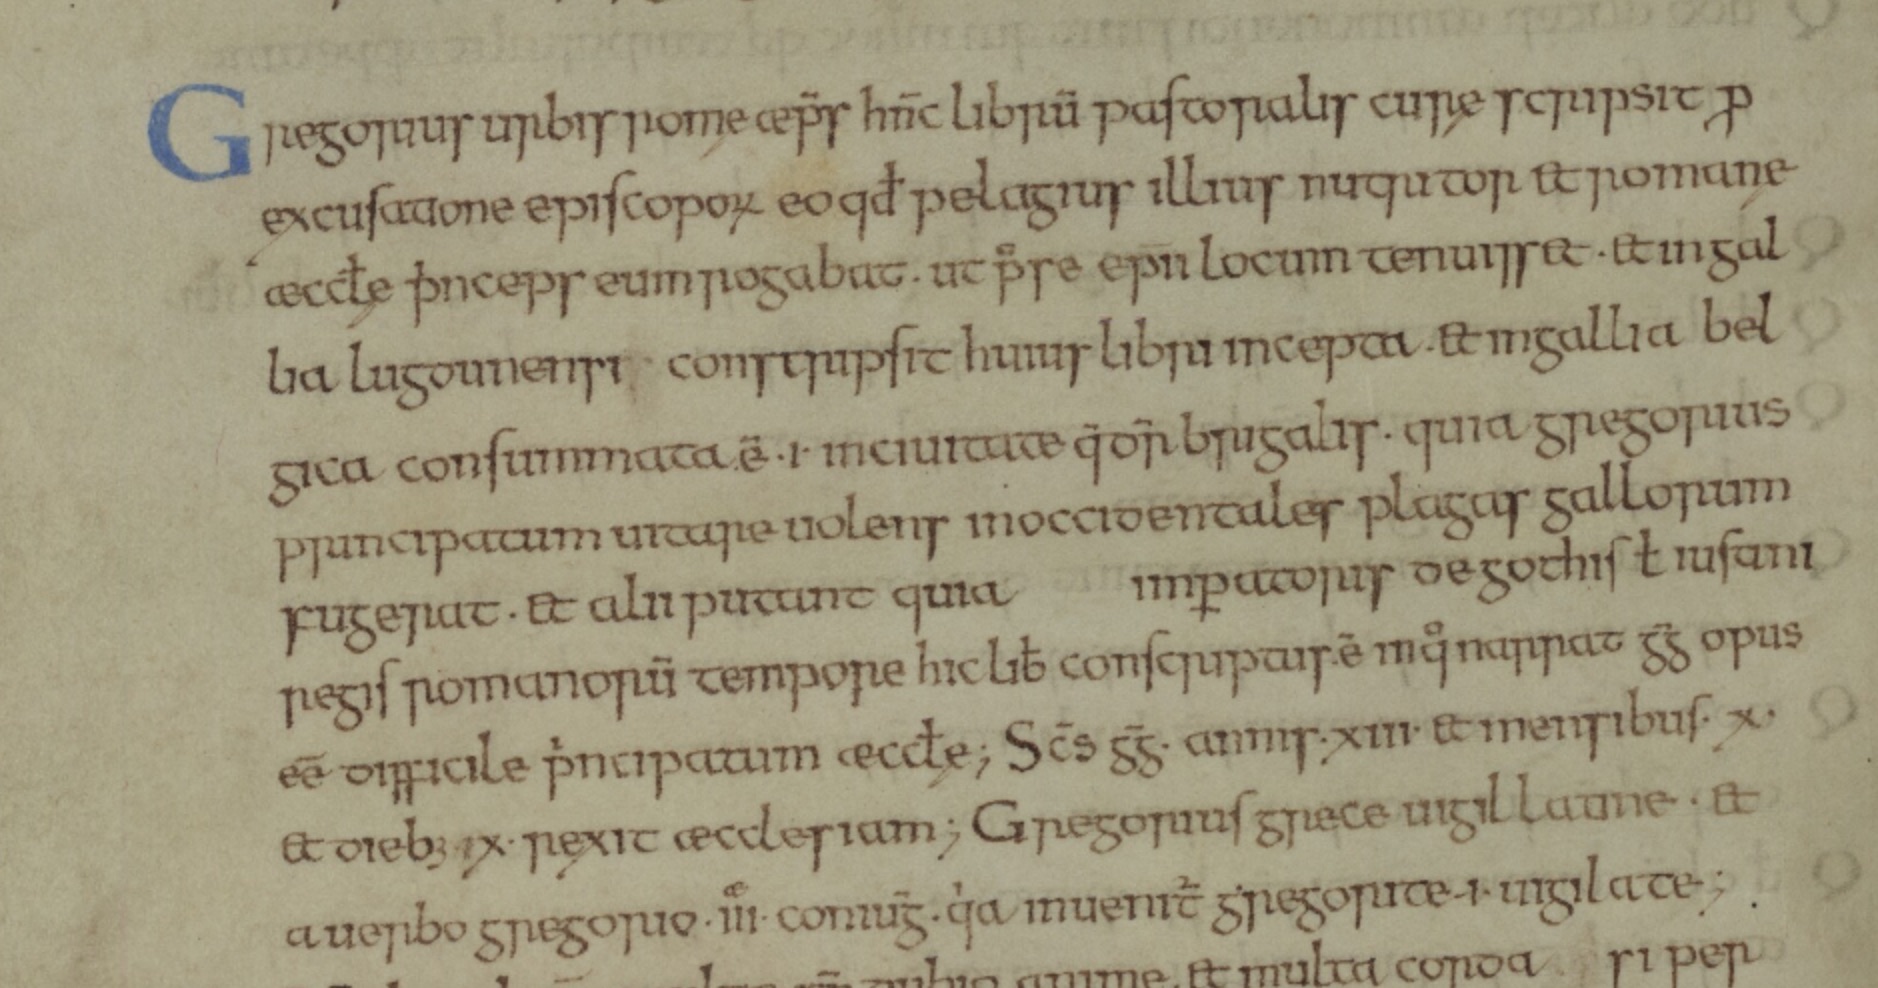 Gregorius urbis romę æp̄s hn̄c librū pastoralis curę scripsit ꝓ
excusatione episcopoꝝ eo qđ pelagius illius nuqutor & romanę
æccłę p̍nceps eum rogabat . ut p̊se epīi locum tenuiss& . & in gal
lia lugdunensi conscripsit huius libri incepta . & in gallia bel
gica consummata ē . i . in ciuitate q̄ dr̄ brugalis . quia gregorius
principatum uitare uolens in occidentales plagas gallorum
fugerat . & alii putant quia imꝑatoris de gothis ł iusani
regis romanorū tempore hic lib̄ conscriptus ē in q̊ narrat gḡ opus
eē difficile p̍ncipatum æccłę ; Sc̄s gḡ . annis . xiii . & mensibus . x .
& dieb; ix . rexit æcclesiam ; Gregorius grece uigil latine . &
a uerbo gregoruo . iii^æ . coniuḡ . q̍a inuenit᷑ gregorite . i . uigilate ;
anime . & multa corda si per